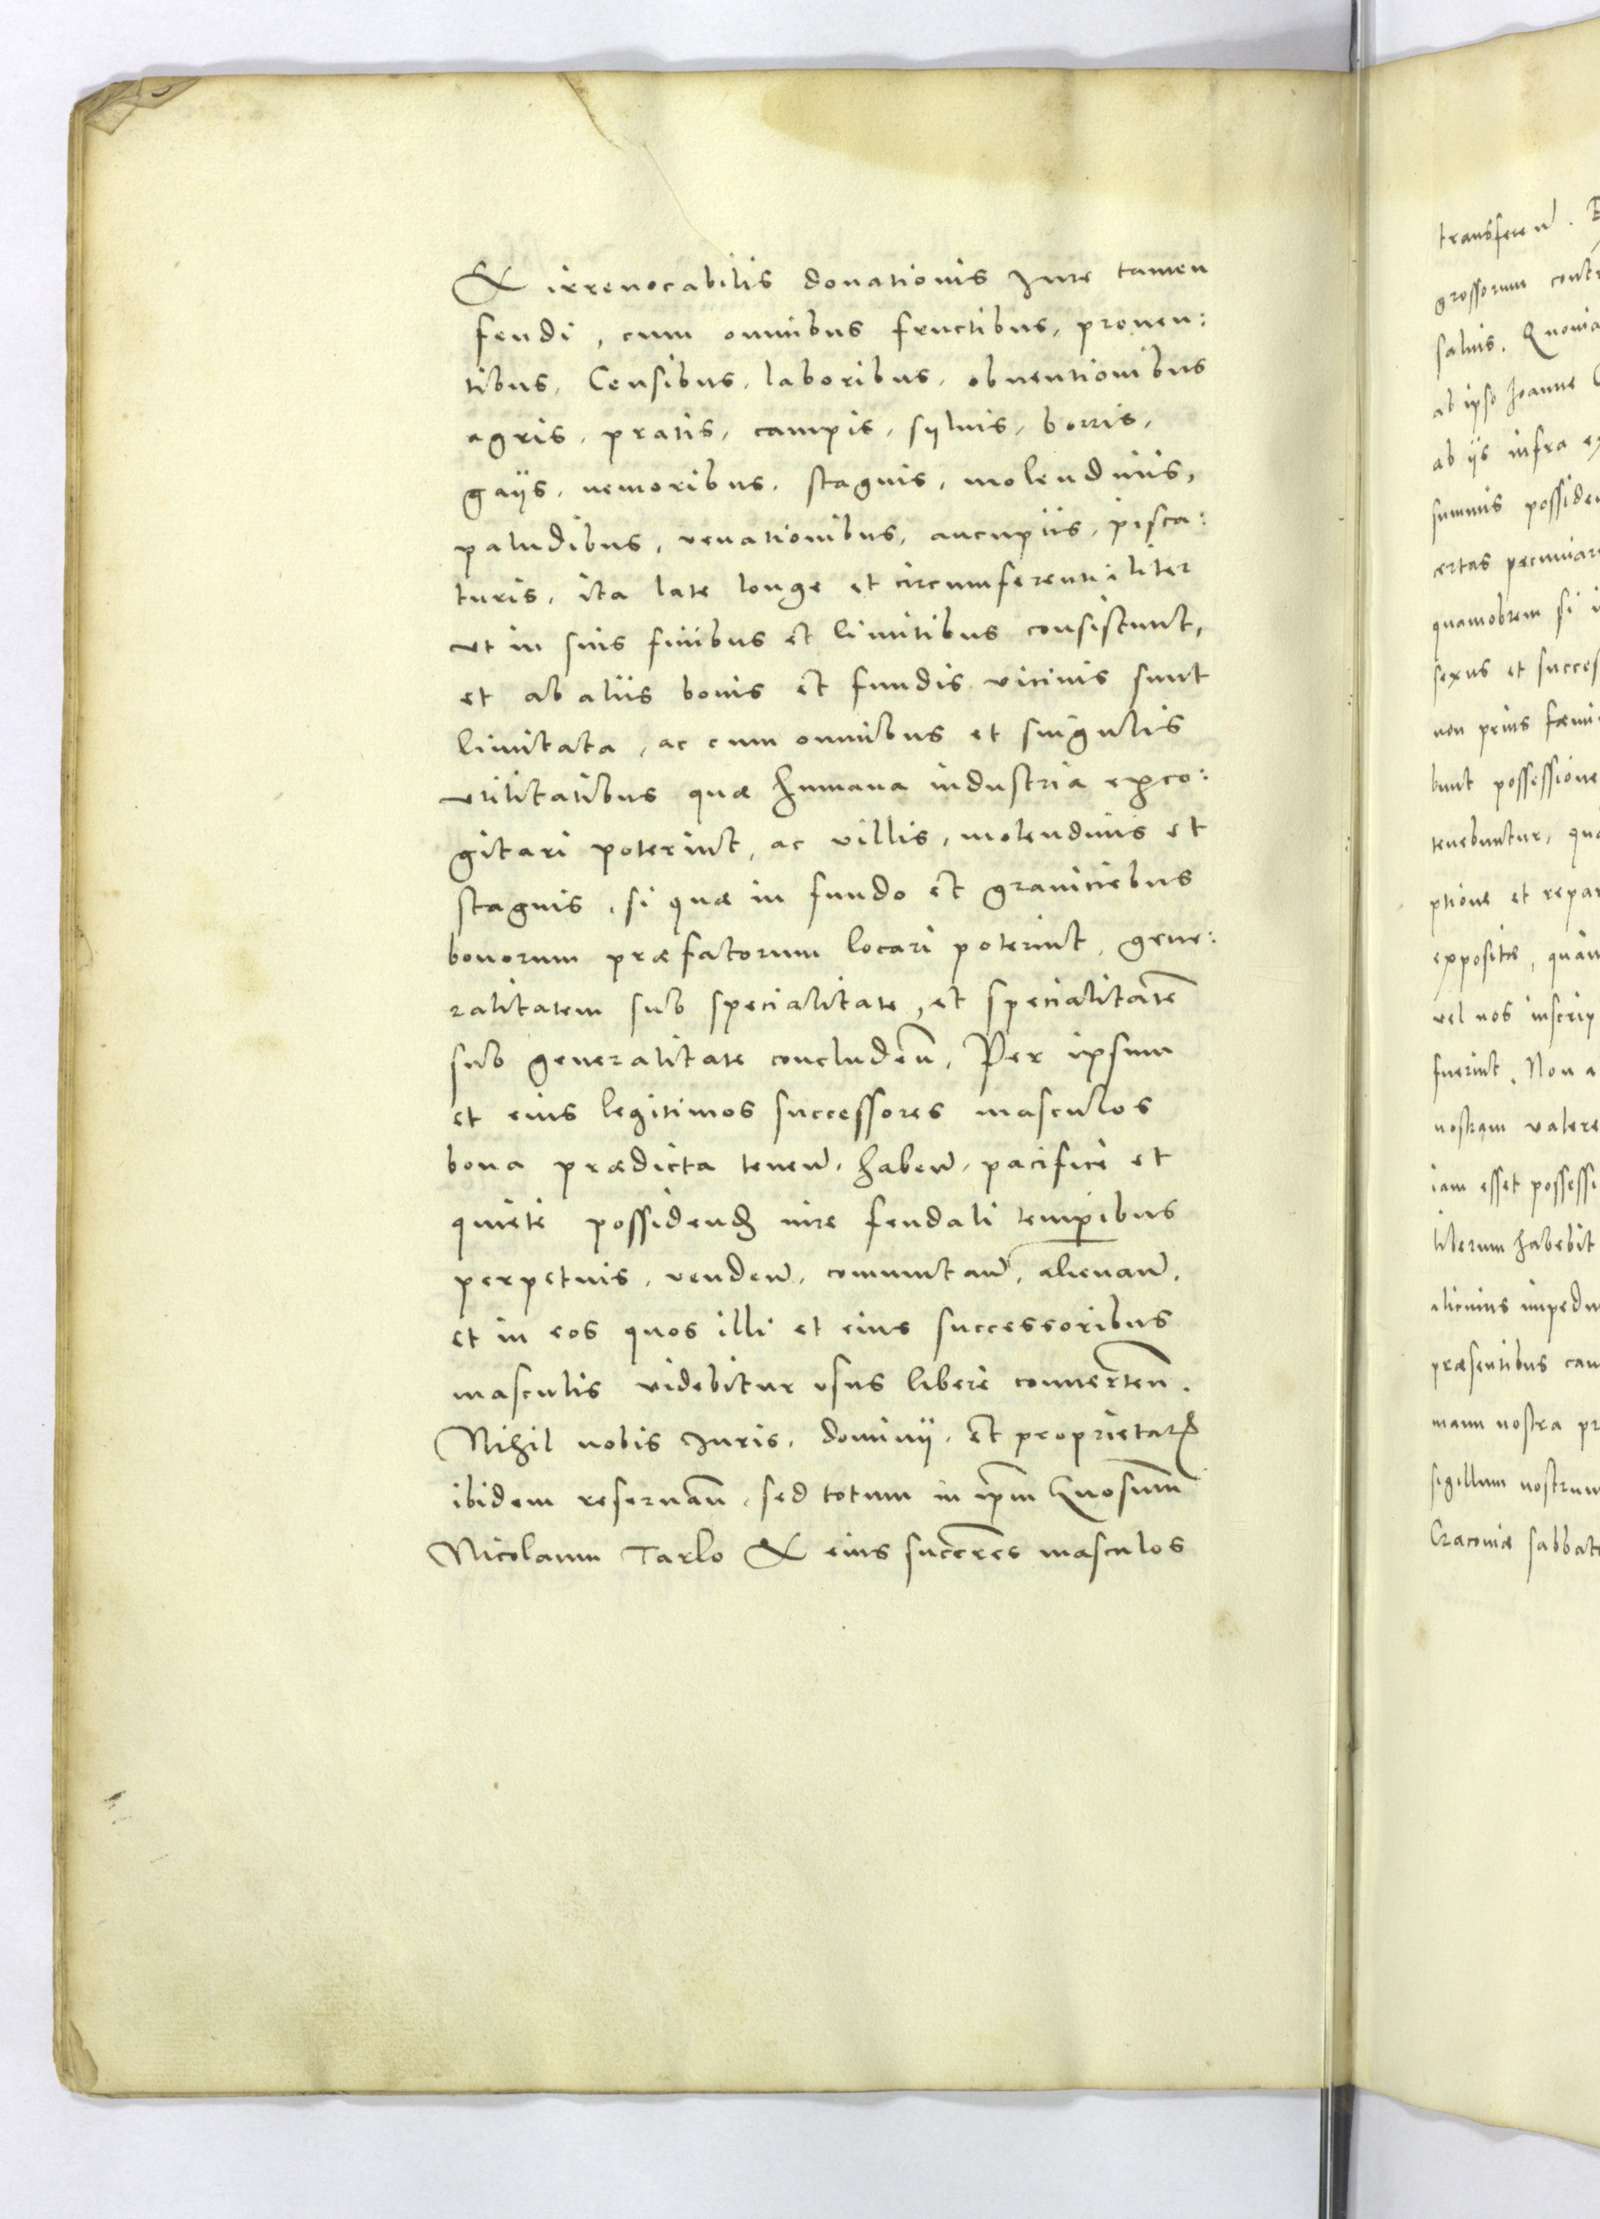 & irreuocabilis donationis Jure tamen
feudi, cum omnibus fructibus, prouen:
tibus, Censibus, laboribus, obuentionibus
agris, pratis, campis, syluis, borris,
gaijs, nemoribus, stagnis, molendinis,
paludibus, venationibus, aucupiis, pisca:
turis, ita late longe et circumferentialiter
vt in suis finibus et limitibus consistunt,
et ab aliis bonis et fundis vicinis sunt
limitata, ac cum omnibus et singulis
vtilitatibus quæ humana industria exco:
gitari poterint, ac villis, molendinis et
stagnis, si quæ in fundo et graniciebus
bonorum præfatorum locari poterint, gene:
ralitatem sub specialitate, et specialitatē
sub generalitate concluden̄, Per ipsum
et eius legitimos successores masculos
bona prædicta tenen̄, haben̄, pacificè et
quietè possidend iure feudali temporibus
perpetuis, venden̄, commutan̄, alienan̄,
et in eos quos illi et eius successoribus
masculis videbitur vsus liberè conuerten̄.
Nihil nobis Juris, dominij, et proprietat
ibidem reseruan̄, sed totum in ip̄m Gnosum̄
Nicolaum Tarlo & eius succ̄res masculos
transferen̄.
grossorum
saluis. Quonia
ab ipso Joanne
ab ijs infra
summis posside
certas pecuniar
quamobrem si
sexus et succes
non prius fœmi
bunt possessione
tenebuntur, qua
ptione et repar
expositæ, quàm
vel nos inscrip
fuerint. Non
nostram valere
iam esset possessi
liberum habebit
alicuius impedi
præsentibus cau
manu nostra
sigillum nostrum
Cracouiæ sabbat